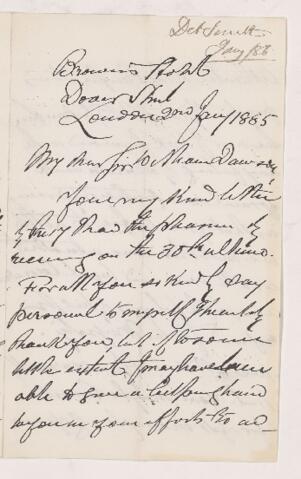 Jany /85
Brown's Hotel
Dover Street
London 2nd Jany 1885
My dear Sir William Dawson
Your very kind letter
I had the pleasure of
receiving on the 30th ultimo.
For all you so kindly say
personal to myself I heartily
thank you, but if to some
little extent I may have been
able to give a helping hand
to you in your efforts to ad-